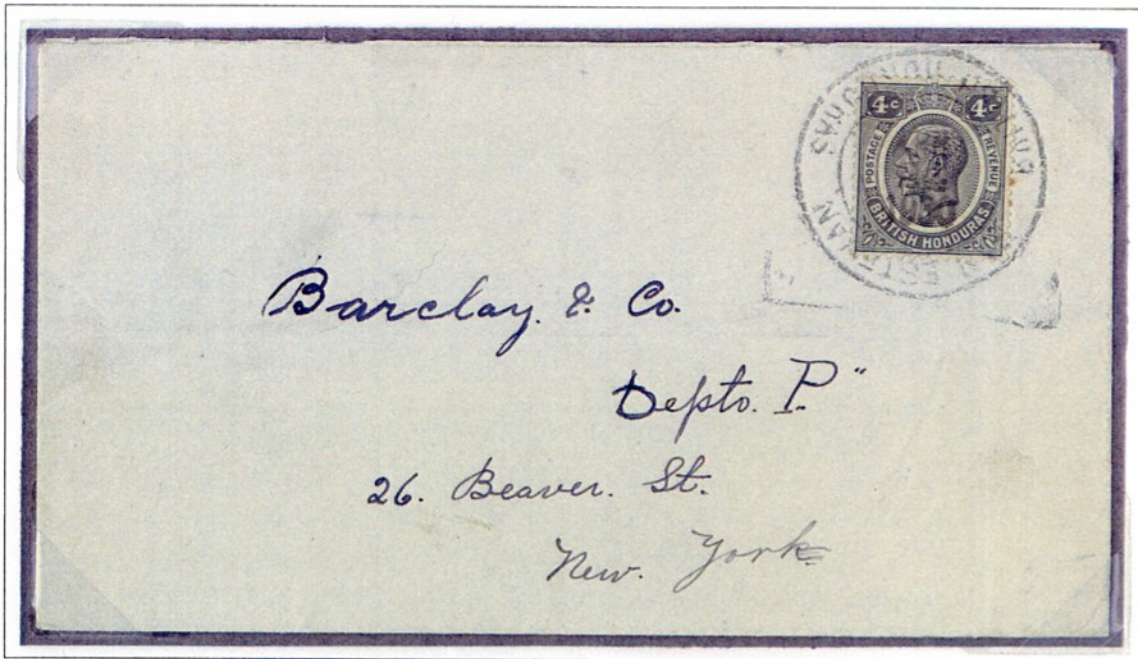 4c 4c
POSTAGE REVENUE
BRITISH HONDURAS
Barclay. & Co.
Depto. P."
26. Beaver. St.
New. York